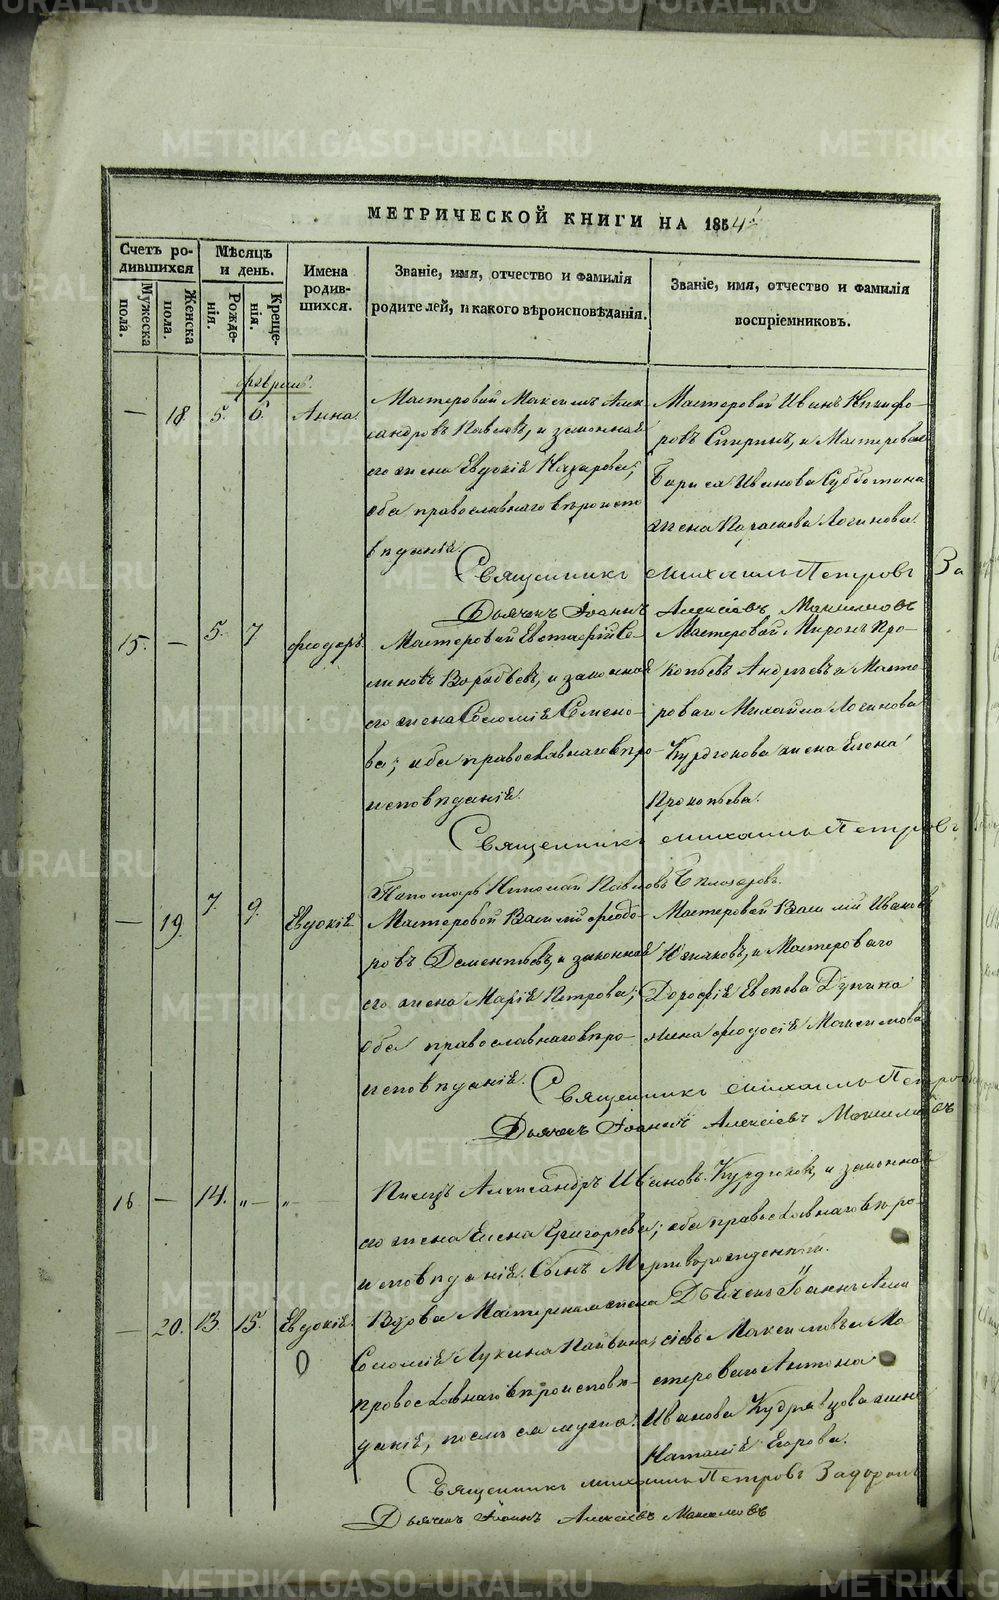 МЕТРИЧЕСКОЙ КНИГИ НА 1854
Счетъ родившихся
Мужеска пола.
Женска пола.
Мѣсяцъ и день.
Рожденія.
Крещенія.
Имена родившихся.
Званіе, имя, отчество и фамилія родителей, и какого вѣроисповѣданія.
Званіе, имя, отчество и фамилія воспріемниковъ.
февраль.
— 18. 5. 6. Анна.
Мастеровой Максимъ Алек-
сандровъ Павловъ, и законная
его жена Евдокія Назарова;
оба православнаго вѣроиспо-
вѣданія.
Мастеровой Иванъ Никифо-
ровъ Спиринъ, и Мастероваго
Бориса Иванова Субботина
жена Логинова.
Священникъ Михаилъ Петровъ За
Дьячекъ Іоаннъ Алексіевъ Максимовъ
15. — 5. 7 Феодоръ.
Мастеровой Евстафій
Воробьевъ, и законная
его жена Соломія Семено-
ва; оба православнаго вѣро-
исповѣданія.
Мастеровой Миронъ Про-
копьевъ Андреевъ и Масте-
роваго Михайла Логинова
Курдюкова жена Елена
Прокопьева.
Священникъ Михаилъ Петровъ
Пономарь Николай Павловъ Бѣлозеровъ.
— 19. 7. 9. Евдокія
Мастеровой Василій Феодо-
ровъ Дементьевъ, и законная
его жена Марія Петрова;
оба православнаго вѣро-
исповѣданія.
Мастеровой Василій Ивановъ
и Мастероваго
Дорофія Евсѣева
жена Феодосія Максимова
Священникъ Михаилъ Петровъ
Дьячекъ Іоаннъ Алексіевъ Максимовъ
16 — 14. „ — „
Писецъ Александръ Ивановъ Курдюковъ, и законная
его жена Елена Григорьева; оба православнаго вѣро-
исповѣданія. Сынъ Мертворожденный.
— 20. 13. 15. Евдокія.
Вдова Мастерская жена
Соломія Лукина
православнаго вѣроисповѣ-
данія, послѣ мужа.
Дьячекъ Іоаннъ Алек-
сіевъ Максимовъ и Ма-
стероваго Антона
Иванова Кудрявцова жена
Наталія Егорова.
Священникъ Михаилъ Петровъ Задорон
Дьячекъ Іоаннъ Алексіевъ Максимовъ
METRIKI.GASO-URAL.RU